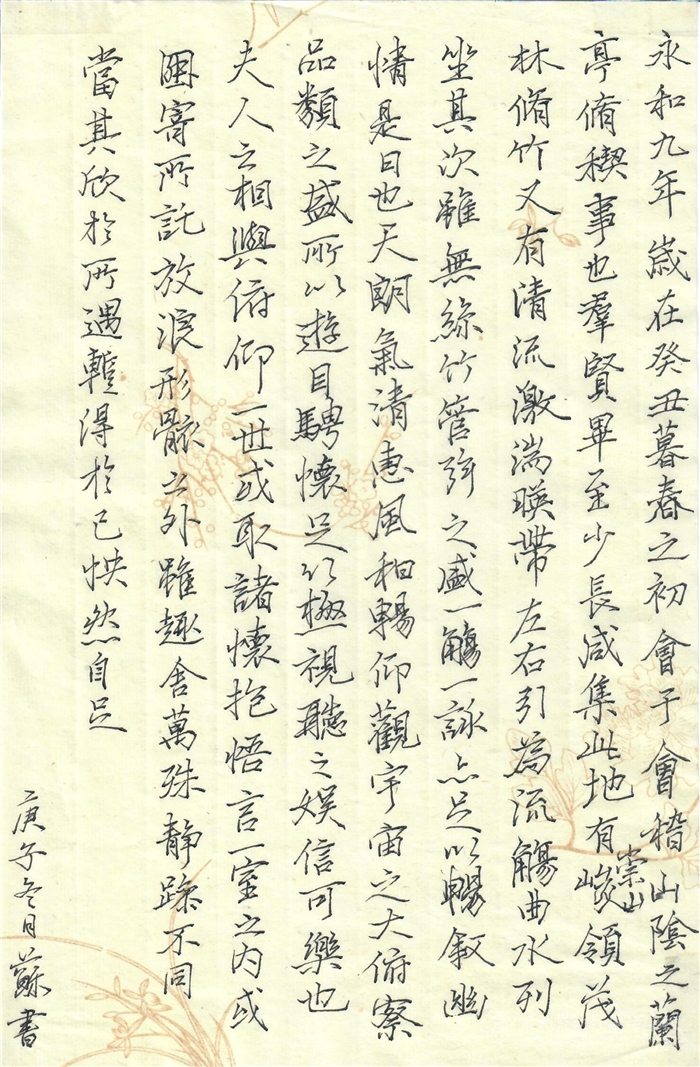 永和九年歲在癸丑暮春之初會于會稽山陰之蘭
亭脩稧事也羣賢畢至少長咸集此地有崇山峻領茂
林脩竹又有清流激湍暎帶左右引為流觴曲水列
坐其次雖無絲竹管弦之盛一觴一詠亦足以暢敘幽
情是日也天朗氣清惠風和暢仰觀宇宙之大俯察
品類之盛所以遊目騁懷足以極視聽之娛信可樂也
夫人之相與俯仰一世或取諸懷抱悟言一室之內或
因寄所託放浪形骸之外雖趣舍萬殊静躁不同
當其欣於所遇蹔得於己怏然自足
庚子冬月蘇書